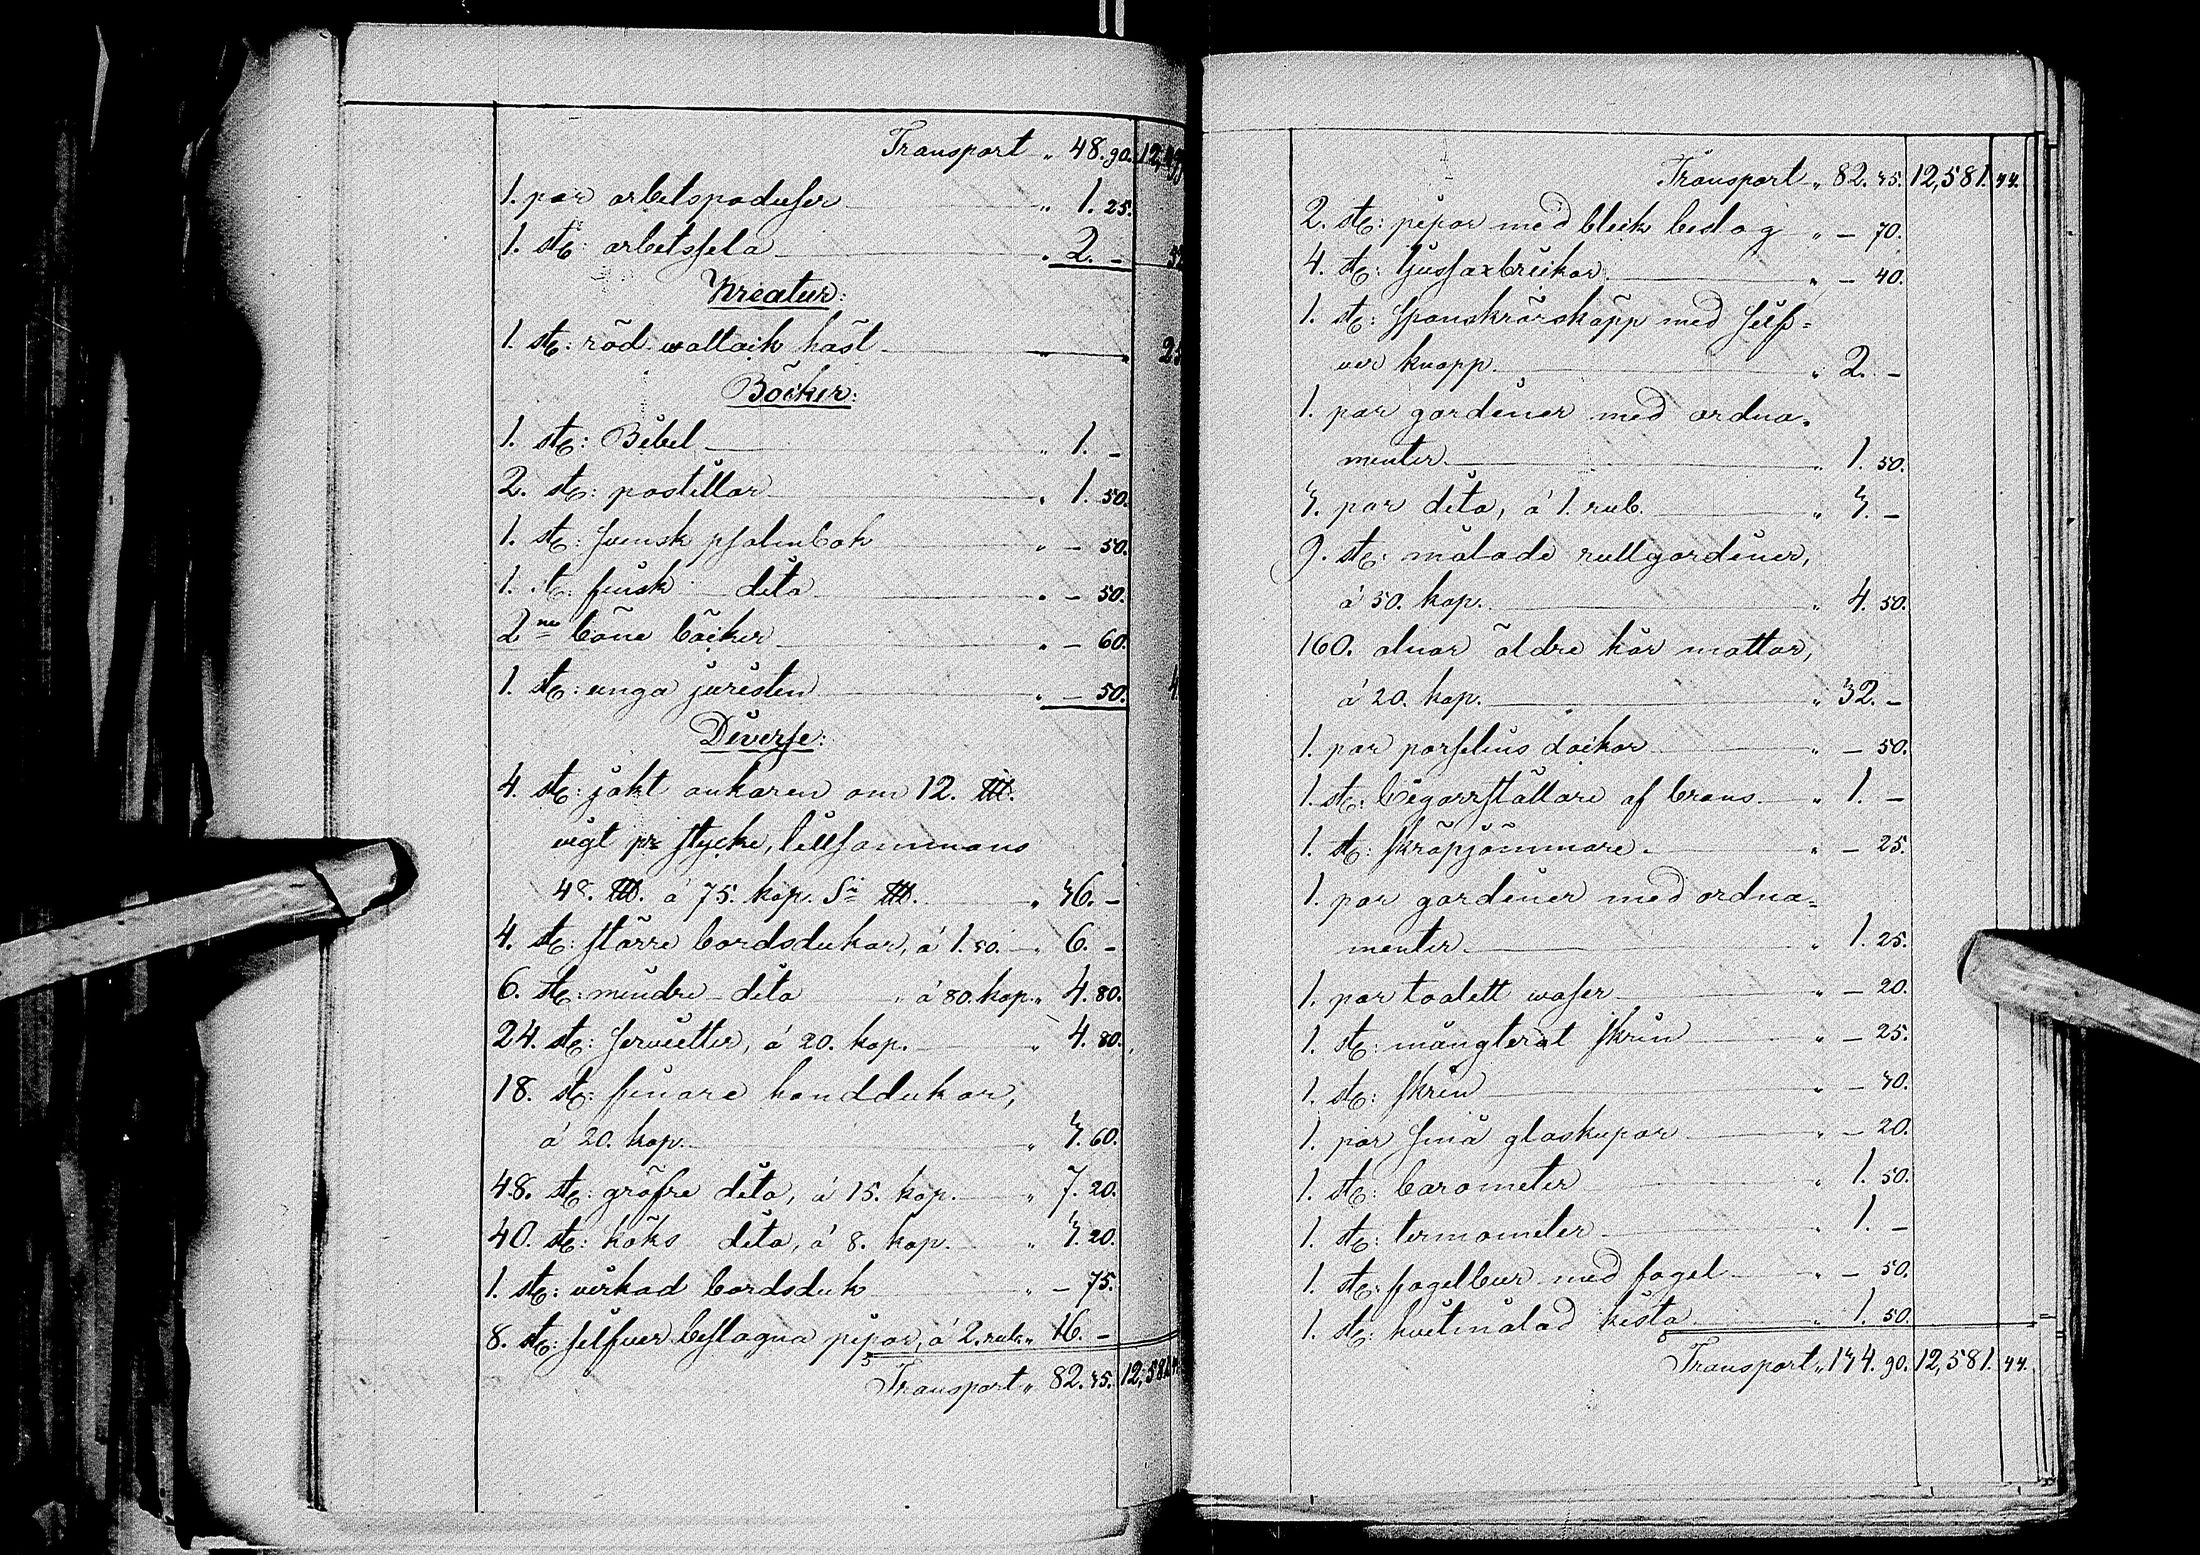 Transport „ 48. 90.
1. par arbetspaduser „ 1. 25.
1. st: arbetssela „ 2. –
Kreatur:
1. st: röd wallack häst „
Böcker:
1. st: Bibel „ 1. –
2. st: postillor „ 1. 50.
1. st: svensk psalmbok „ – 50.
1. st: finsk dito „ – 50.
2ne böne böcker „ – 60.
1. st: unga juristen „ – 50.
Diverse:
4. st: jakt ankaren om 12. ℔.
vigt pr stycke, tillsammans
48. ℔. á 75. kop. S:r ℔. „ 36. –
4. st: större bordsdukar, á 1. 50. „ 6. –
6. st: mindre dito „ á 80. kop. „ 4. 80.
24. st: servietter, á 20. kop. „ 4. 80.
18. st: finare handdukar,
á 20. kop. „ 3. 60.
48. st: gröfre dito, á 15. kop. „ 7. 20.
40. st: köks dito, á 8. kop. „ 3. 20.
1. st: virkad bordsduk „ – 75.
8. st: silfver beslagna pipor, á 2. rub. „ 16. –
Transport „ 82. 35.
Transport „ 82. 35. 12,581. 33.
2. st: pipor med bleck beslag „ – 70.
4. st: ljussaxbrickor „ – 40.
1. st: spanskrörskäpp med silf=
ver knapp „ 2. –
1. par gardiner med ordna=
menter „ 1. 50.
3. par dito, á 1. rub. „ 3. –
9. st: målade rullgardiner,
á 50. kop. „ 4. 50.
160. alnar äldre hår mattor,
á 20. kop. „ 32. –
1. par porslins dockor „ – 50.
1. st: Cigarrställare af brons „ 1. –
1. st: skräpjömmare „ – 25.
1. par gardiner med ordna=
menter „ 1. 25.
1. par toalett waser „ – 20.
1. st: månglerat skrin „ – 25.
1. st: skrin „ – 30.
1. par små glaskupor „ – 20.
1. st: barometer „ 1. 50.
1. st: termometer „ 1. –
1. st: fogelbur med fogel „ – 50.
1. st: hvitmålad kista „ 1. 50.
Transport „ 134. 90. 12,581. 33.